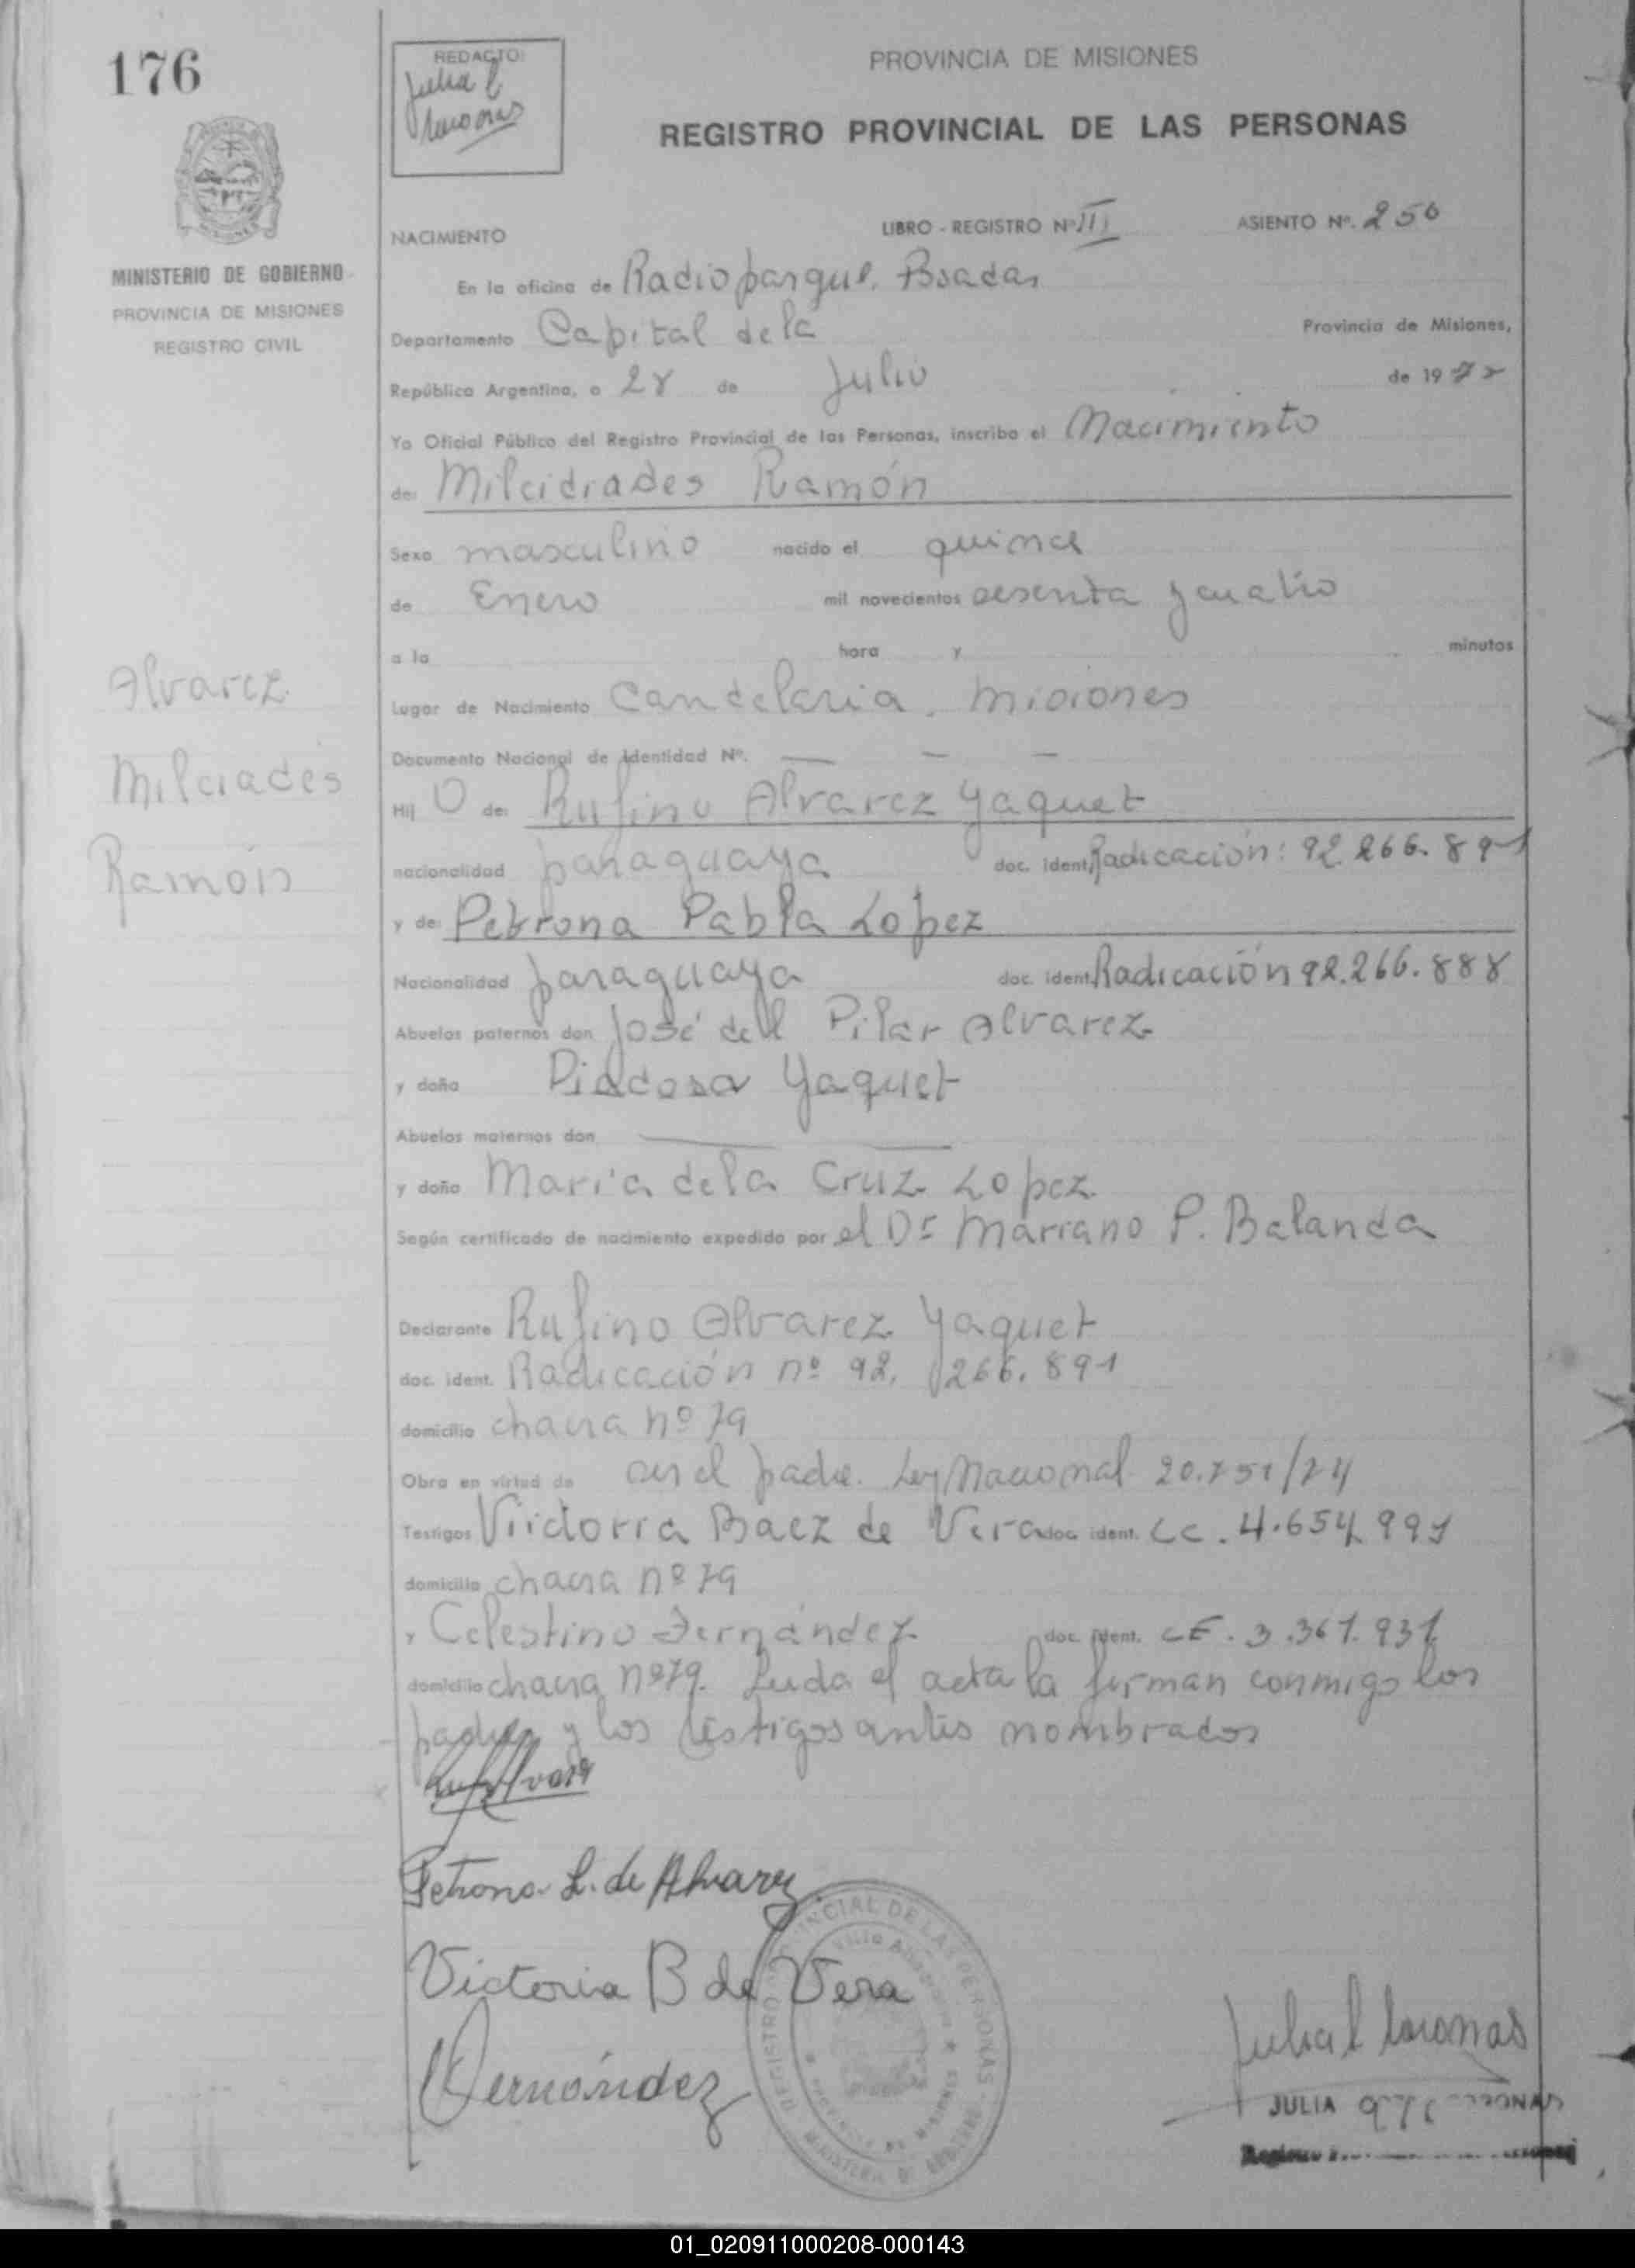 176
REDACTO:
Julia l
PROVINCIA DE MISIONES
REGISTRO PROVINCIAL DE LAS PERSONAS
NACIMIENTO LIBRO - REGISTRO Nº III ASIENTO Nº. 256
MINISTERIO DE GOBIERNO
PROVINCIA DE MISIONES
REGISTRO CIVIL
En la oficina de Radioparque. Posadas
Departamento Capital de la Provincia de Misiones,
República Argentina, a 28 de Julio de 19
Yo Oficial Público del Registro Provincial de las Personas, inscribo el Nacimiento
de: Milcidiades Ramón
Sexo masculino nacido el quince
de Enero mil novecientos sesenta y cuatro
a la hora y minutos
Alvarez
Milciades
Ramón
Lugar de Nacimiento Candelaria. Misiones
Documento Nacional de Identidad Nº. — — —
Hij o de: Rufino Alvarez Yaquet
nacionalidad paraguaya doc. ident. Radicación: 92.266.891
y de: Petrona Pabla Lopez
Nacionalidad paraguaya doc. ident. Radicación 92.266.888
Abuelos paternos don José dell Pilar Alvarez
y doña Piadosa Yaquet
Abuelos maternos don — —
y doña Maria de la Cruz Lopez
Según certificado de nacimiento expedido por el Dr Mariano P. Balanda
Declarante Rufino Alvarez Yaquet
doc. ident. Radicación nº 92. 266.891
domicilio chacra nº 79
Obra en virtud de ser el padre. Ley Nacional 20.751/74
Testigos Viictoria Baez de Vera doc. ident. LC. 4.654.991
domicilio chacra nº 79
y Celestino Fernández doc. ident. LE. 3.367.931
domicilio chacra nº79. Leida el acta la firman conmigo los
padres y los testigos antes nombrados
Petrona L. de Alvarez
Victoria B de Vera
Fernández
REGISTRO PROVINCIAL DE LAS PERSONAS
MINISTERIO DE GOBIERNO
PROVINCIA DE MISIONES
Julia l
JULIA
01_020911000208-000143